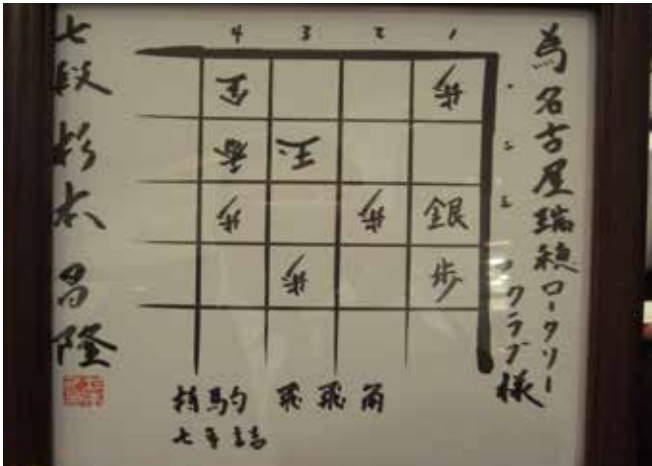 為名古屋瑞穂ロータリー
クラブ様
4 3 2 1
金 歩 一
香 玉 二
歩 歩 銀 三
歩 歩
持駒 飛飛角
七手詰
七段 杉本昌隆